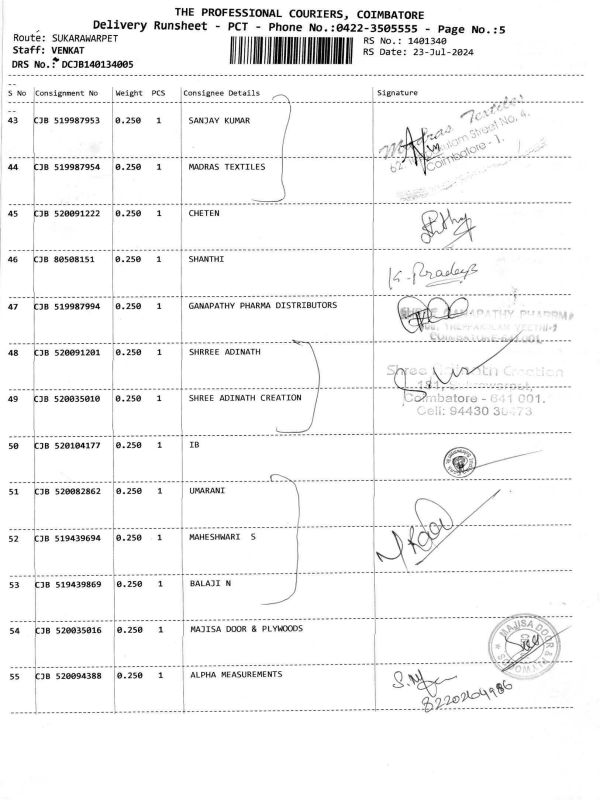 THE PROFESSIONAL COURIERS, COIMBATORE
Delivery Runsheet - PCT - Phone No.:0422-3505555 - Page No.:5
Route: SUKARAWARPET RS No.: 1401340
Staff: VENKAT RS Date: 23-Jul-2024
DRS No.: DCJB140134005
S No Consignment No Weight PCS Consignee Details Signature
43 CJB 519987953 0.250 1 SANJAY KUMAR
Madras Textiles
Street No, 4,
Coimbatore - 1.
44 CJB 519987954 0.250 1 MADRAS TEXTILES
45 CJB 520091222 0.250 1 CHETEN
46 CJB 80508151 0.250 1 SHANTHI
K. Pradeep
47 CJB 519987994 0.250 1 GANAPATHY PHARMA DISTRIBUTORS
GANAPATHY PHARMA
COIMBATORE-641 001.
48 CJB 520091201 0.250 1 SHRREE ADINATH
Shree Adinath Creation
49 CJB 520035010 0.250 1 SHREE ADINATH CREATION
Coimbatore - 641 001.
Cell: 94430
50 CJB 520104177 0.250 1 IB
51 CJB 520082862 0.250 1 UMARANI
52 CJB 519439694 0.250 1 MAHESHWARI S
53 CJB 519439869 0.250 1 BALAJI N
54 CJB 520035016 0.250 1 MAJISA DOOR & PLYWOODS
MAJISA DOOR &
55 CJB 520094388 0.250 1 ALPHA MEASUREMENTS
8220204986